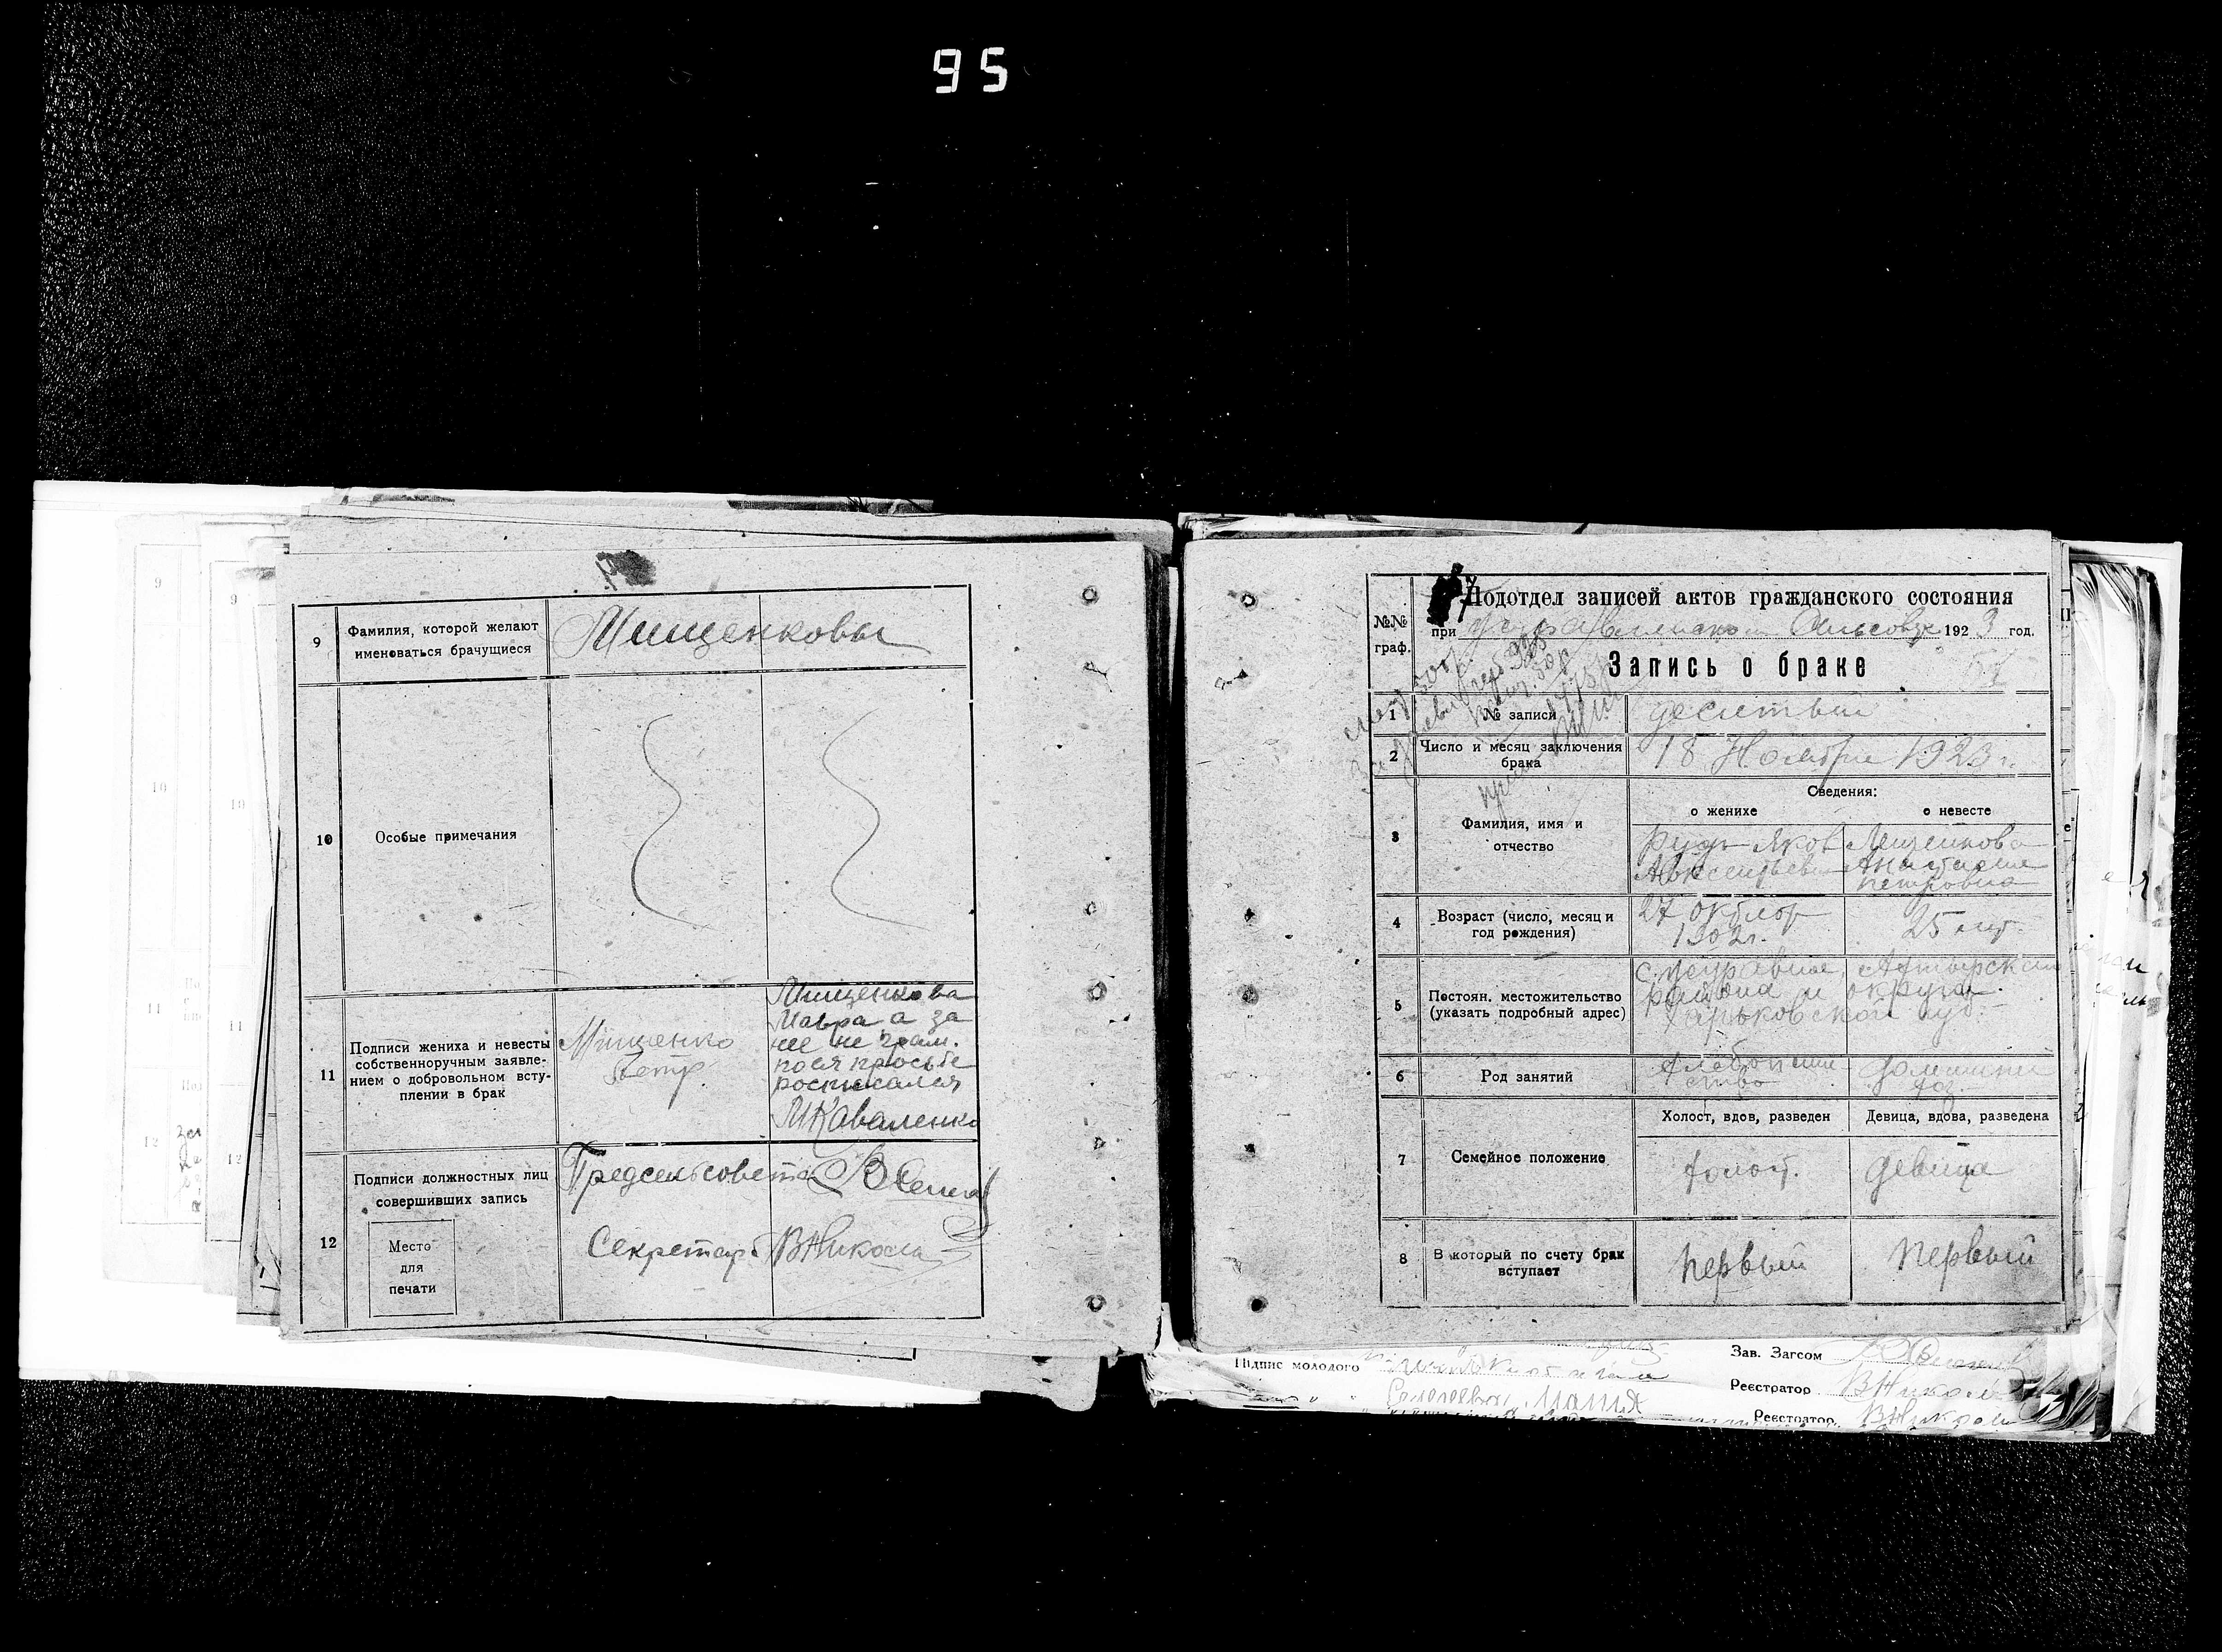 95
9
Фамилия, которой желают
именоваться брачущиеся
Мищенковы
10
Особые примечания
11
Подписи жениха и невесты
собственноручным заявле-
нием о добровольном всту-
плении в брак
Мищенко
Петр
Мищенкова
Мавра а за
нее не грам.
по ея прось бе
росписался
МКаваленко
12
Подписи должностных лиц
совершивших запись
Место
для
печати
Предсельсовета
Секретарь ВНикола
№№
граф.
Подотдел записей актов гражданского состояния
при Сельсовде 192 3 год.
Запись о браке
1
№ записи
десятый
2
Число и месяц заключения
брака
18 Ноября 1923 г.
Сведения:
о женихе
о невесте
3
Фамилия, имя и
отчество
Рудь Яков
Авксентьев
Мищенкова
Анастасия
Петровна
4
Возраст (число, месяц и
год рождения)
27 октяб
1902г.
25 лет.
5
Постоян. местожительство
(указать подробный адрес)
Ахтырскаго
района и округа
Харьковской губ.
6
Род занятий
Хлебопаше
ство
домашни
хоз.
Холост, вдов, разведен
Девица, вдова, разведена
7
Семейное положение
холост.
девица
8
В который по счету брак
вступает
первый
первый
Підпис молодого
Зав. Загсом
Реєстратор ВНикола
Реєстратор ВНикола